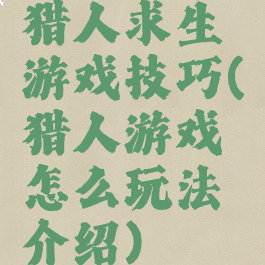 猎人求生
游戏技巧(
猎人游戏
怎么玩法
介绍)